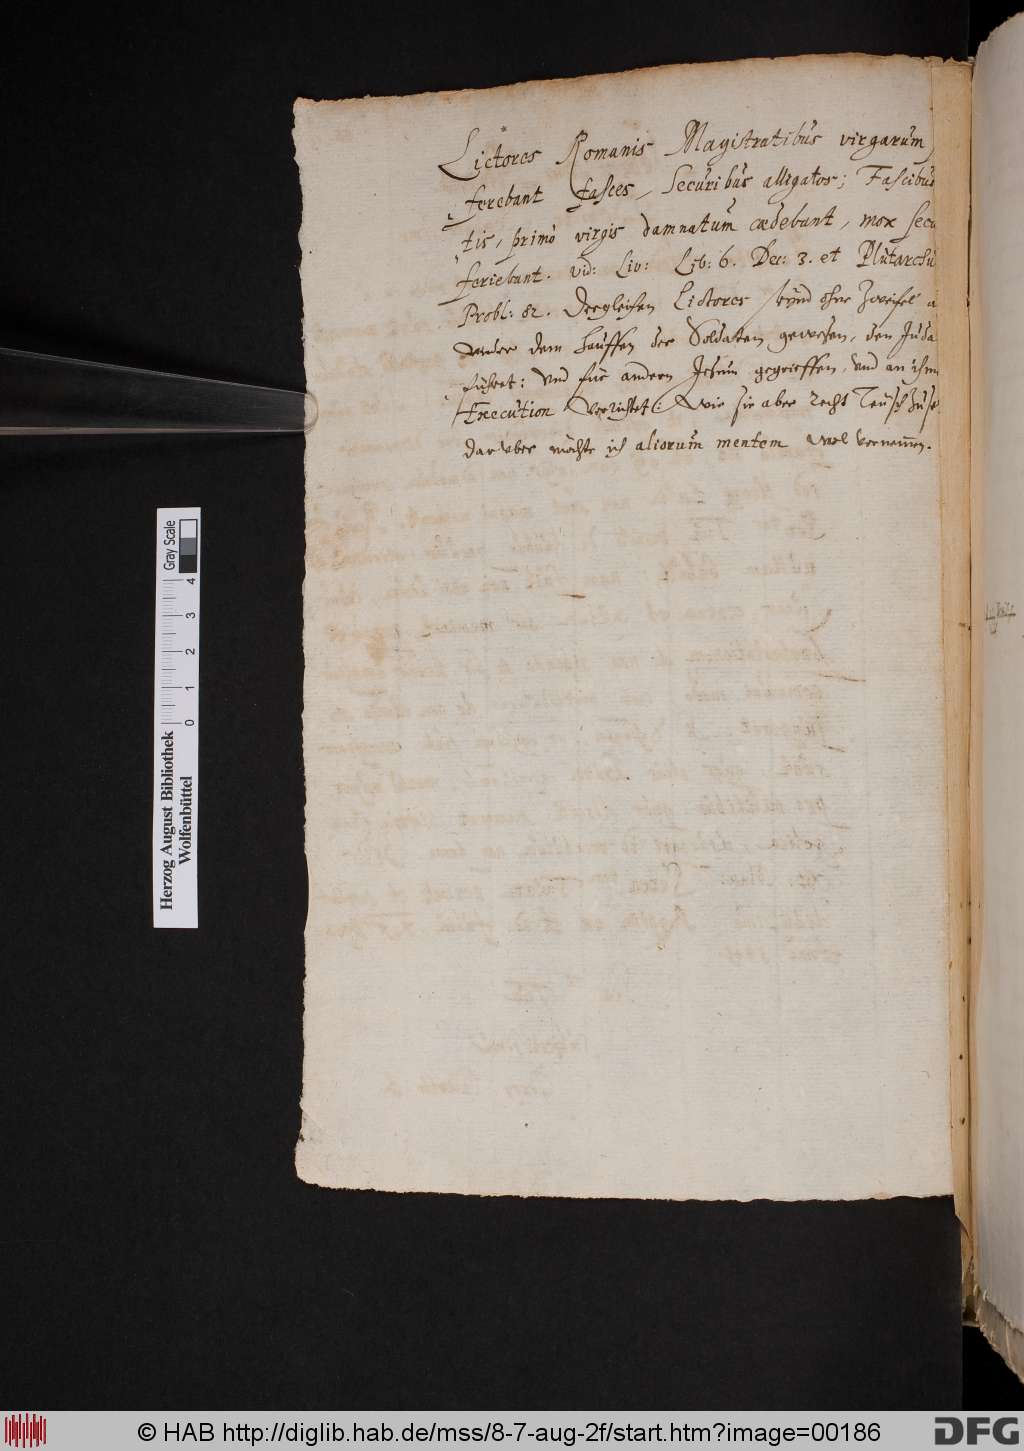 Lictores Romanis Magistratibus virgarum
ferebant fasces, Securibus alligatos; Fascibus
tis, primò virgis damnatum cædebant, mox secu
feriebant. vid: Liv: Lib: 6. Dec: 3. et Plutarchu
Probl: 82. Dergleichen Lictores seynd ohne Zweifel a
under dem hauffen der Soldaten gewesen, den Juda
führet: Und für andern Jesum gegrieffen, und an ihm
Execution verrichtet: Wie sie aber recht Teüsch
darüber möchte ich aliorum mentem wol vernemmen.
Gray Scale
0 1 2 3 4
Herzog August Bibliothek
Wolfenbüttel
© HAB http://diglib.hab.de/mss/8-7-aug-2f/start.htm?image=00186
DFG